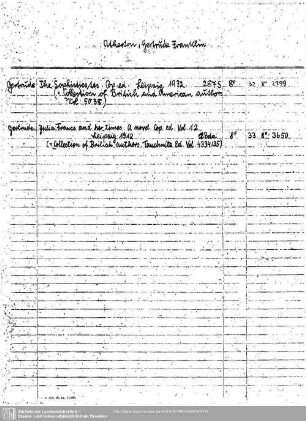 Atherton, Gertrude Franklin
Gertrude The Sophisticates. Cop. ed. Leipzig 1932. 287 S. 8° 32 8° 2199
(= Collection of British and American authors
Vol. 5038)
Gertrude Julia France and her times. A novel. Cop. ed. Vol. 1.2
Leipzig 1912. 8° 33 8° 3650
(= Collection of British authors. Tauchnitz Ed. Vol. 4334/35)
Sächsische Landesbibliothek -
Staats- und Universitätsbibliothek Dresden